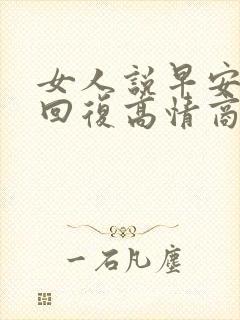 女人說早安
回復高情商
一石凡塵